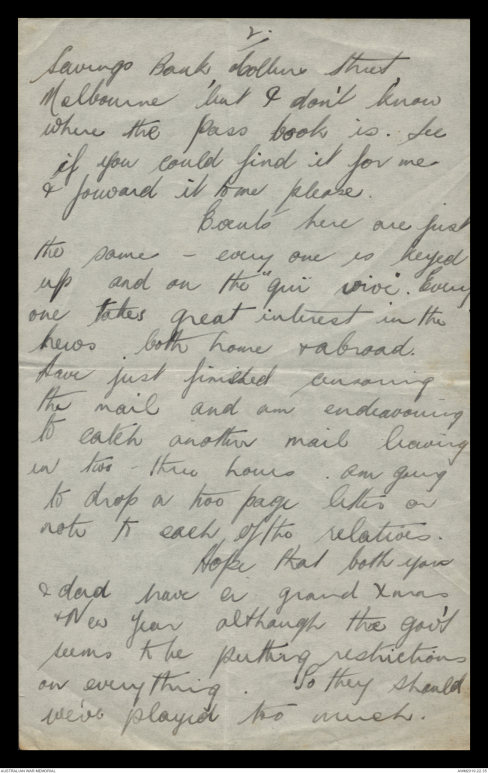 2.
Savings Bank Collins Street,
Melbourne but I don't know
where the pass book is. See
if you could find it for me
& forward it to me please.
Events here are just
the same - every one is keyed
up and on the "qui vive". Every
one takes great interest in the
news both home & abroad.
Have just finished censoring
the mail and am endeavouring
to catch another mail leaving
in two - three hours. Am going
to drop a two page letter or
note to each of the relatives.
Hope that both you
& dad have a grand Xmas
& New Year although the gov't
seems to be putting restrictions
on everything. So they should
we've played too much.
AUSTRALIAN WAR MEMORIAL